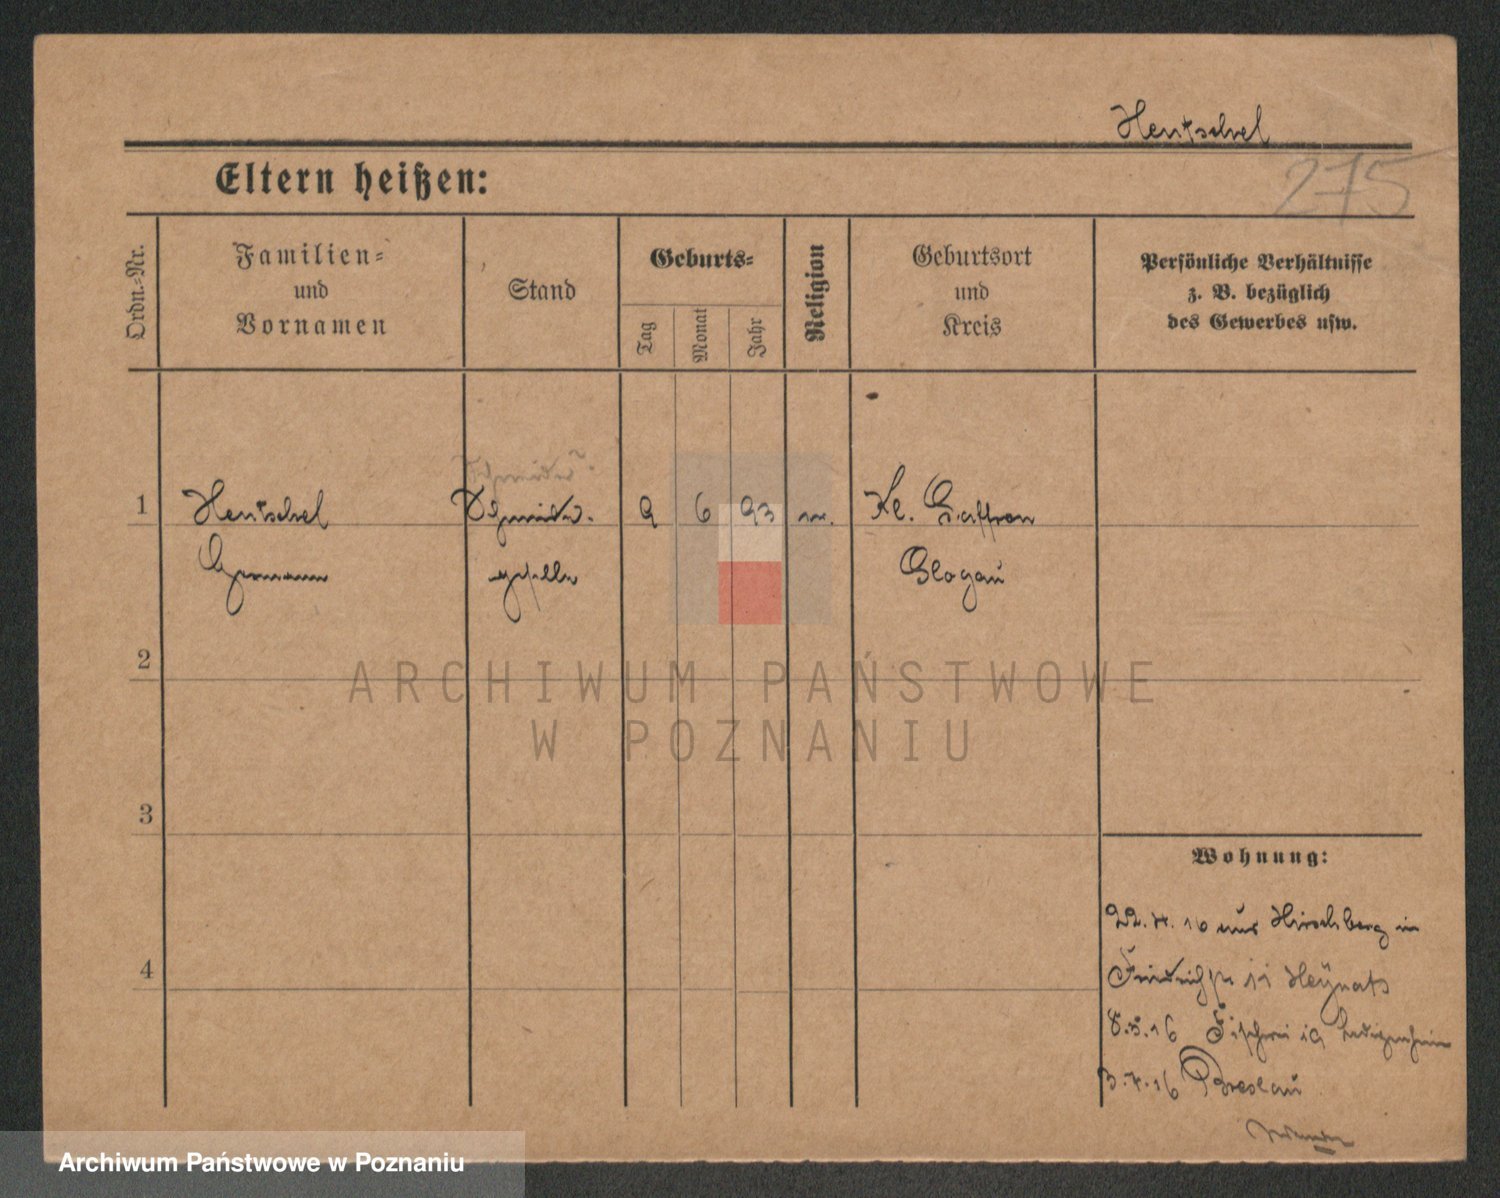 Hentschel
275
Eltern heißen:
Ordn.-Nr.
Familien-
und
Vornamen
Stand
Geburts-
Tag
Monat
Jahr
Religion
Geburtsort
und
Kreis
Persönliche Verhältnisse
z. B. bezüglich
des Gewerbes usw.
1
Hentschel
Hermann
Schmiede-
geselle
9
6
93
Kl. Gaffron
Glogau
2
3
4
Wohnung:
22. 4. 16 aus Hirschberg in
Friedrichstr 11 Heynats
8.5.16 Fischerei 19
3.7.16 Breslau
ARCHIWUM PAŃSTWOWE
W POZNANIU
Archiwum Państwowe w Poznaniu